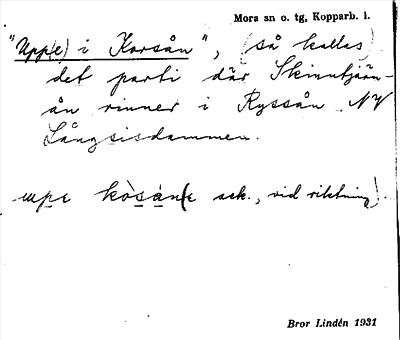 Mora sn o. tg, Kopparb. l.
"Upp(e) i Korsån", (så kallas)
det parti där Skinntjärn-
ån rinner i Ryssån NV
Långsisdammen.
uppe kòsán(e ack., vid riktning).
Bror Lindén 1931